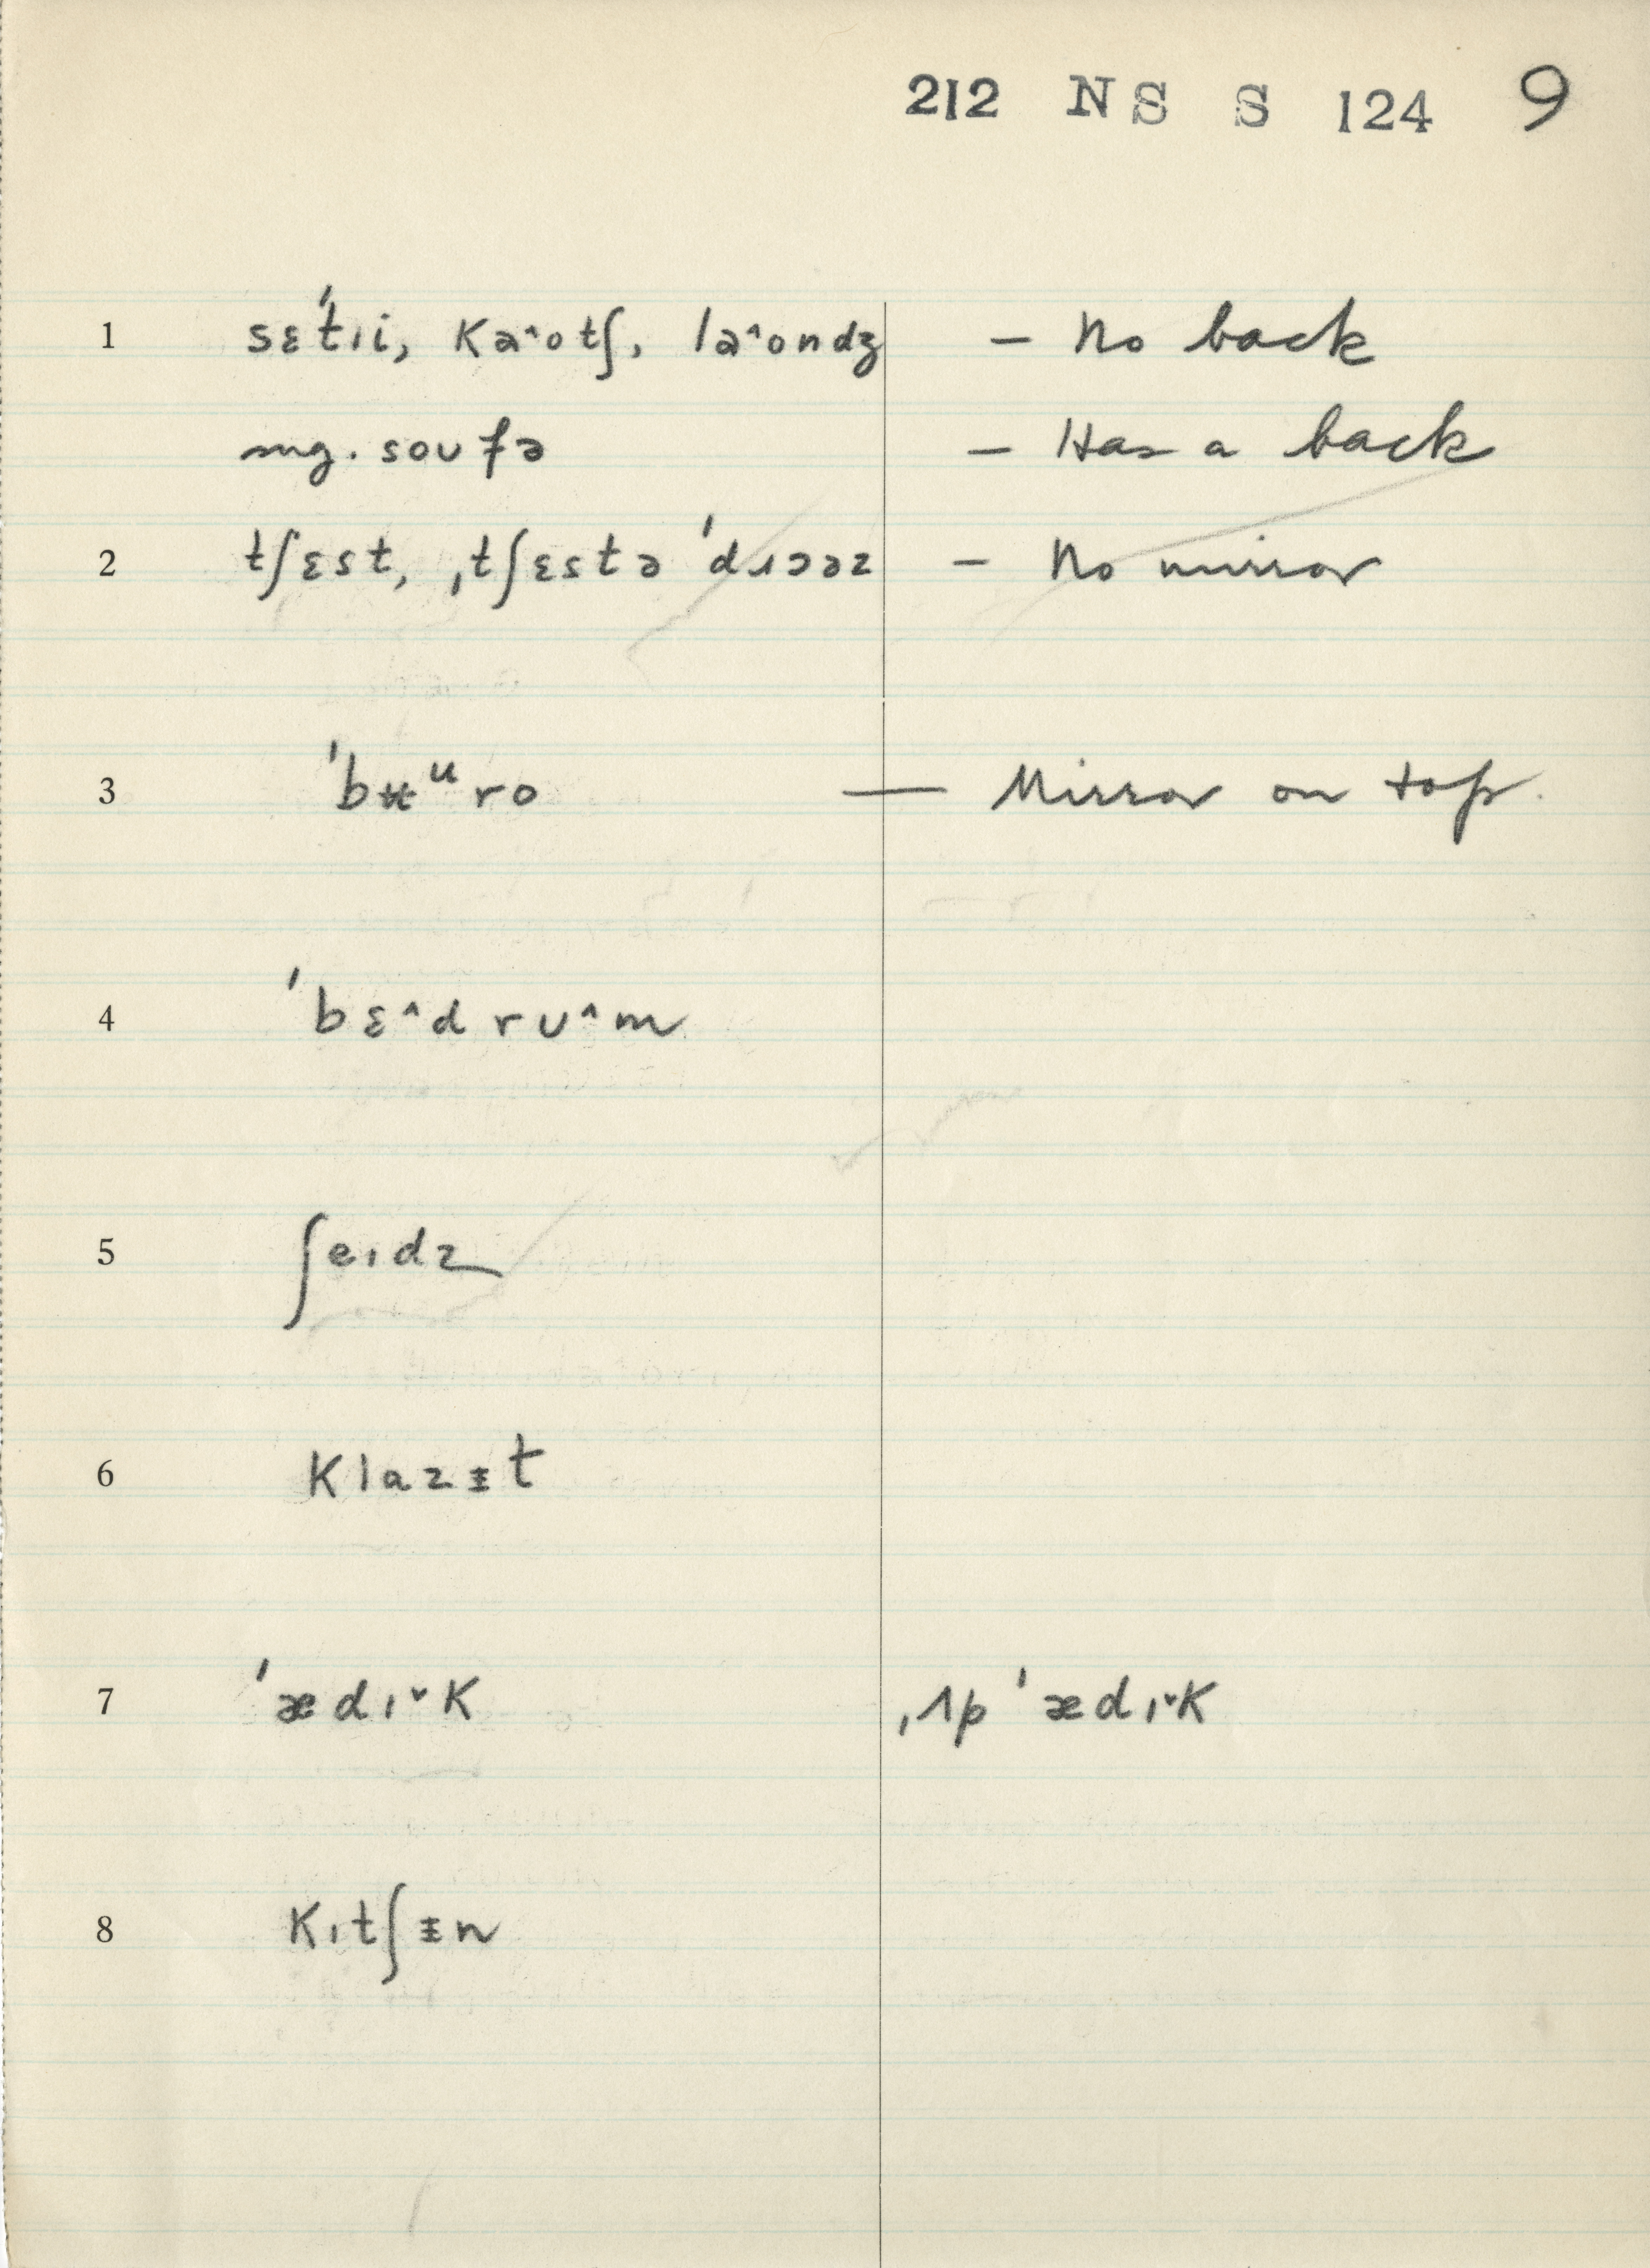 212 NS S 124 9
1 sɛˈtıi, Kaˆotʃ, laˆondʒ – No back
mg. soʊfə – Has a back
2 tʃɛst, ˌtʃɛstə ˈdɹɔəz – No mirror
3 ˈbʉᵘro — Mirror on top.
4 ˈbɛˆdrʊˆm
5 ʃeıdz
6 Klazɪ̵t
7 ˈædıˇK ˌʌpˈædıˇK
8 Kıtʃɪ̵n